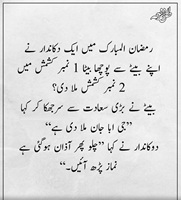 رمضان المبارک میں ایک دکاندار نے
اپنے بیٹے سے پوچھا بیٹا 1 نمبر کشمش میں
2 نمبر کشمش ملا دی؟
بیٹے نے بڑی سعادت سے سر جھکا کر کہا
”جی ابا جان ملا دی ہے“
دوکاندار نے کہا ”چلو پھر آذان ہوگئی ہے
نماز پڑھ آئیں۔“